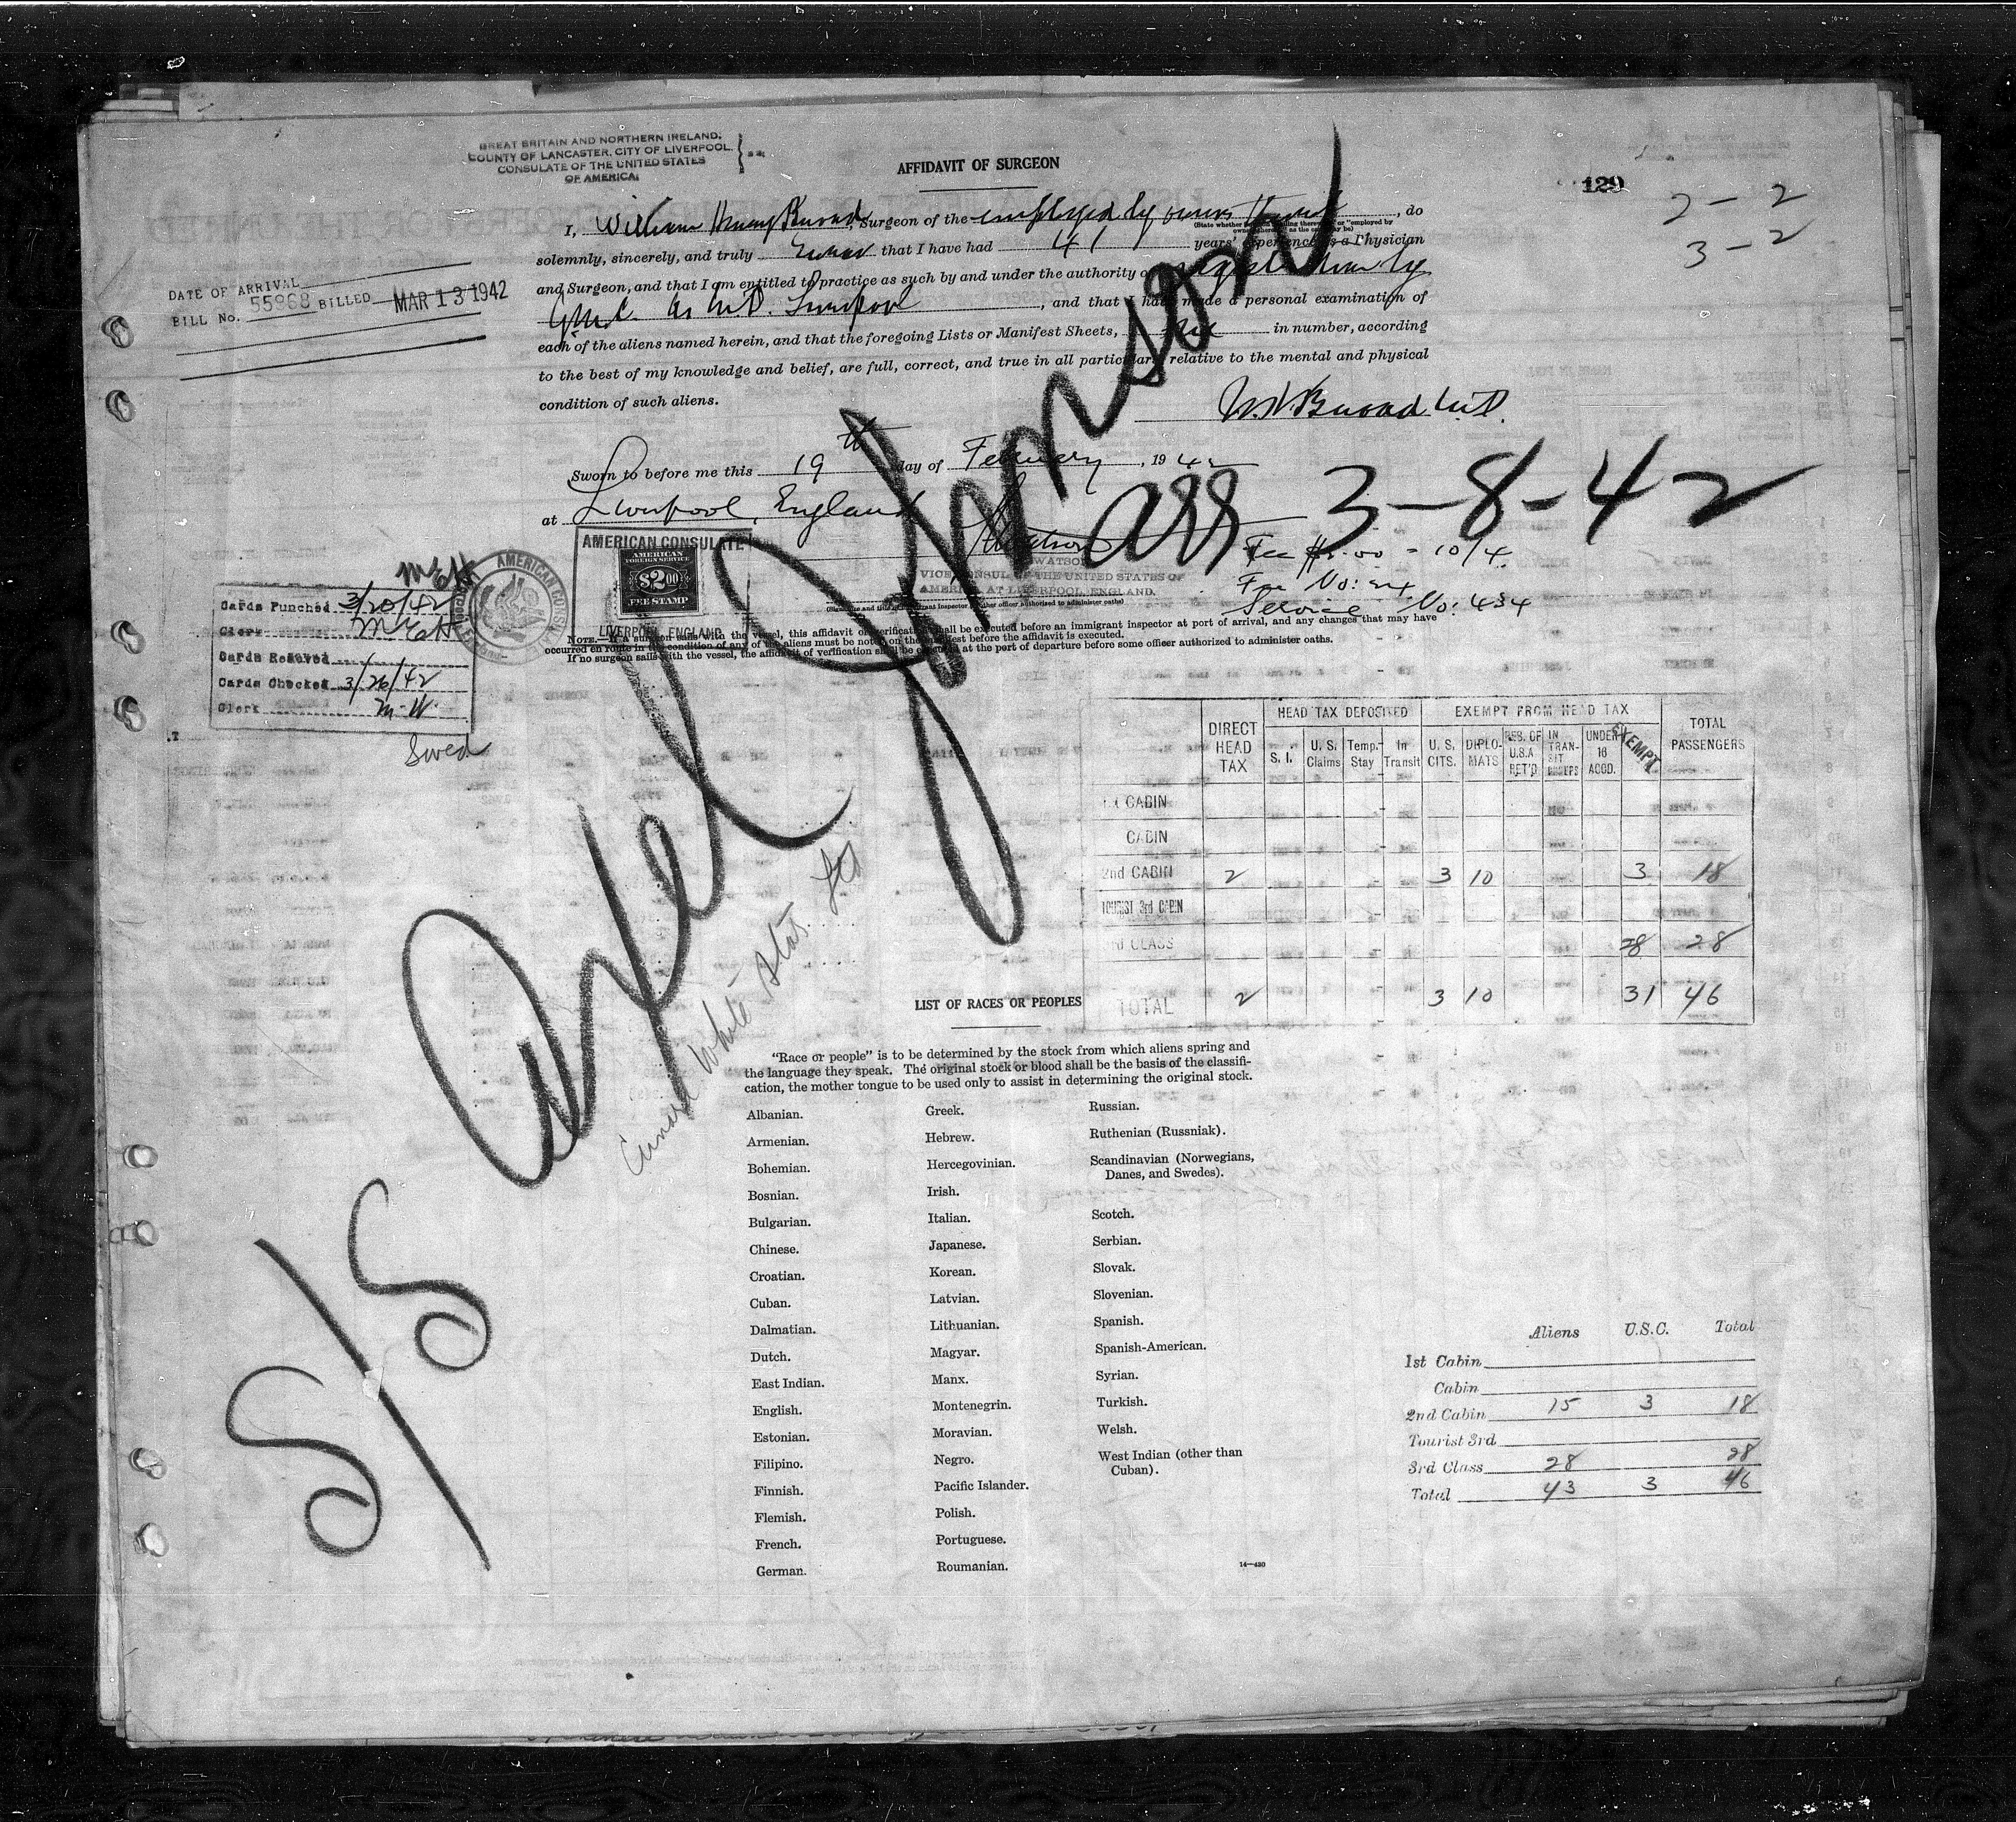 GREAT BRITAIN AND NORTHERN IRELAND,
COUNTY OF LANCASTER, CITY OF LIVERPOOL.
CONSULATE OF THE UNITED STATES
OF AMERICA:
AFFIDAVIT OF SURGEON
129
2-2
3-2
I, William Henry, Surgeon of the employed by owners thereof, do
solemnly, sincerely, and truly swear that I have had 41 years' experience as a Physician
and Surgeon, and that I am entitled to practice as such by and under the authority of
G.M.C. as M.D. Liverpool, and that I have made a personal examination of
each of the aliens named herein, and that the foregoing Lists or Manifest Sheets, in number, according
to the best of my knowledge and belief, are full, correct, and true in all particulars relative to the mental and physical
condition of such aliens.
DATE OF ARRIVAL
BILL No. 55968 BILLED MAR 13 1942
Sworn to before me this 19th day of February, 1942
at Liverpool, England
S/S Axel Johnson
arr 3-8-42
AMERICAN CONSULATE
AMERICAN
FOREIGN SERVICE
$2.00
FEE STAMP
LIVERPOOL, ENGLAND
WATSON
VICE CONSUL OF THE UNITED STATES OF
AMERICA AT LIVERPOOL, ENGLAND.
Fee $2.00 - 10/4
Fee No: 24
Service No: 434
AMERICAN CONSUL
MEH
Cards Punched 3/20/42
Clerk MEH
Cards Removed
Cards Checked 3/26/42
Clerk M-W
Swed
NOTE.—If a surgeon sails with the vessel, this affidavit or verification shall be executed before an immigrant inspector at port of arrival, and any changes that may have
occurred en route in the condition of any of the aliens must be noted on the manifest before the affidavit is executed.
If no surgeon sails with the vessel, the affidavit of verification shall be executed at the port of departure before some officer authorized to administer oaths.
DIRECT HEAD TAX HEAD TAX DEPOSITED EXEMPT FROM HEAD TAX TOTAL PASSENGERS
S. I. U. S. Claims Temp. Stay In Transit U. S. CITS. DIPLOMATS RES. OF U.S.A. RET'D IN TRANSIT UNDER 16 ACCD. EXEMPT
1st CABIN
CABIN
2nd CABIN 2 3 10 3 18
TOURIST 3rd CABIN
3rd CLASS 28 28
TOTAL 2 3 10 31 46
Cunard White Star Ltd
LIST OF RACES OR PEOPLES
"Race or people" is to be determined by the stock from which aliens spring and
the language they speak. The original stock or blood shall be the basis of the classifi-
cation, the mother tongue to be used only to assist in determining the original stock.
Albanian.
Armenian.
Bohemian.
Bosnian.
Bulgarian.
Chinese.
Croatian.
Cuban.
Dalmatian.
Dutch.
East Indian.
English.
Estonian.
Filipino.
Finnish.
Flemish.
French.
German.
Greek.
Hebrew.
Hercegovinian.
Irish.
Italian.
Japanese.
Korean.
Latvian.
Lithuanian.
Magyar.
Manx.
Montenegrin.
Moravian.
Negro.
Pacific Islander.
Polish.
Portuguese.
Roumanian.
Russian.
Ruthenian (Russniak).
Scandinavian (Norwegians,
Danes, and Swedes).
Scotch.
Serbian.
Slovak.
Slovenian.
Spanish.
Spanish-American.
Syrian.
Turkish.
Welsh.
West Indian (other than
Cuban).
14—420
Aliens U.S.C. Total
1st Cabin
Cabin
2nd Cabin 15 3 18
Tourist 3rd
3rd Class 28 28
Total 43 3 46